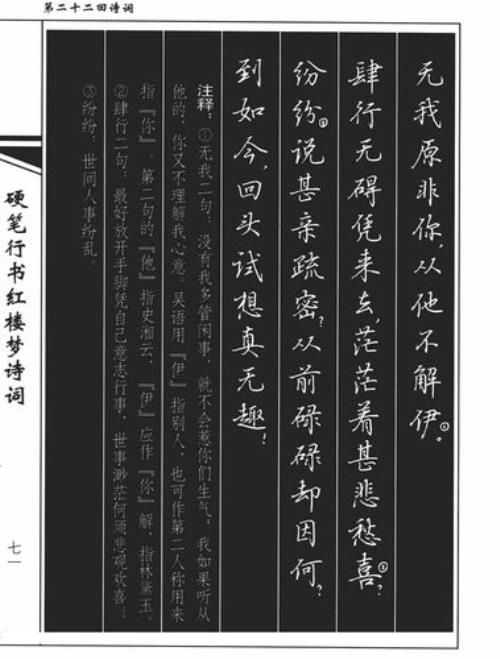 第二十二回诗词
无我原非你,从他不解伊①。
肆行无碍凭来去,茫茫着甚悲愁喜②?
纷纷③说甚亲疏密?从前碌碌却因何?
到如今,回头试想真无趣!
注释:①无我二句:没有我多管闲事,就不会惹你们生气,我如果听从
他的,你又不理解我心意。吴语用『伊』指别人,也可作第二人称用来
指『你』。第二句的『他』指史湘云,『伊』应作『你』解,指林黛玉。
②肆行二句:最好放开手脚凭自己意志行事,世事渺茫何须悲观欢喜!
③纷纷:世间人事纷乱。
硬笔行书红楼梦诗词
七一